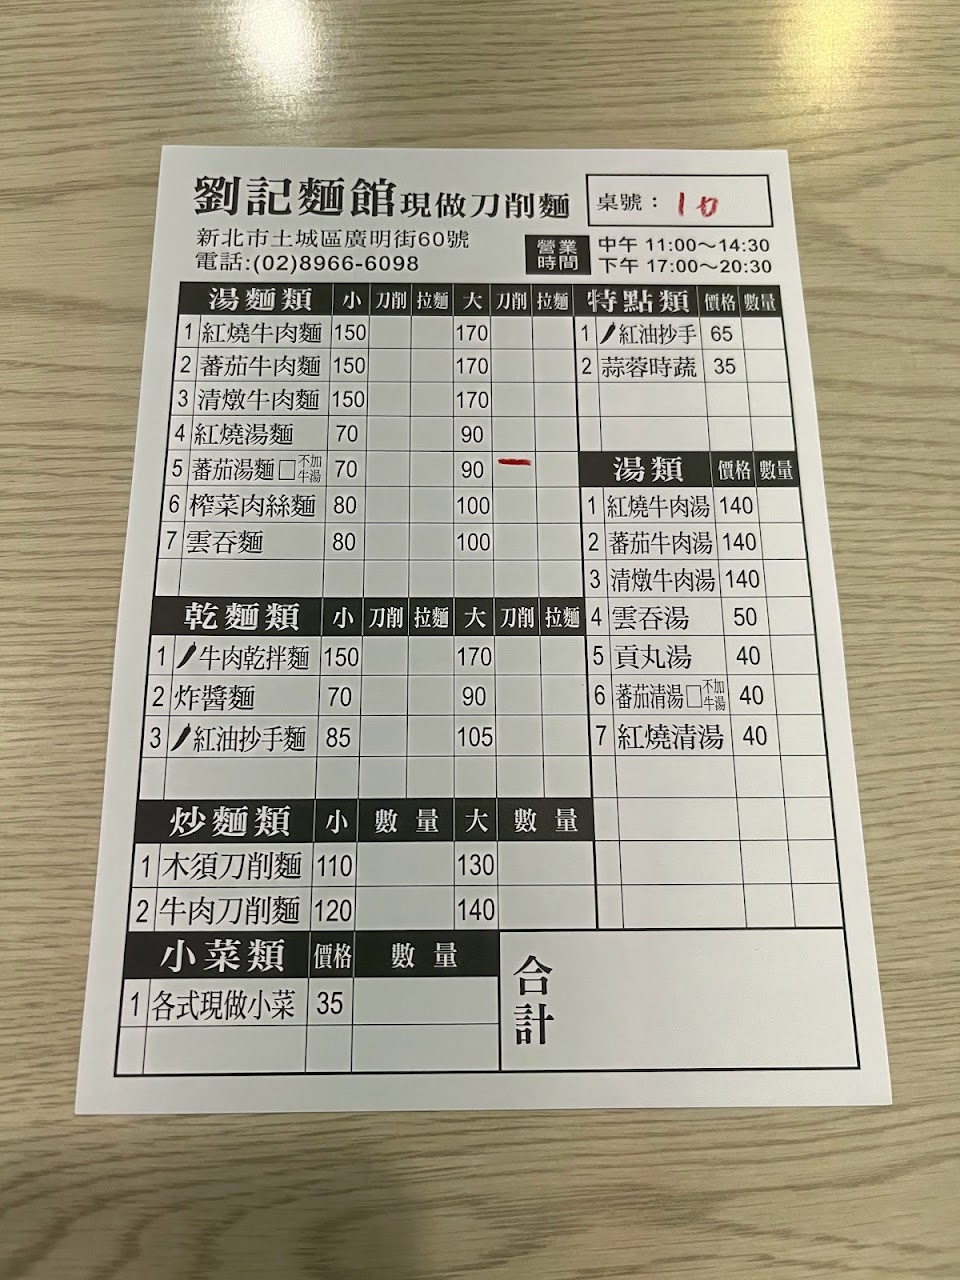 劉記麵館現做刀削麵
桌號：10
新北市土城區廣明街60號
電話:(02)8966-6098
營業時間
中午 11:00～14:30
下午 17:00～20:30
湯麵類 小 刀削 拉麵 大 刀削 拉麵
1 紅燒牛肉麵 150 170
2 蕃茄牛肉麵 150 170
3 清燉牛肉麵 150 170
4 紅燒湯麵 70 90
5 蕃茄湯麵□不加牛湯 70 90 一
6 榨菜肉絲麵 80 100
7 雲吞麵 80 100
乾麵類 小 刀削 拉麵 大 刀削 拉麵
1 牛肉乾拌麵 150 170
2 炸醬麵 70 90
3 紅油抄手麵 85 105
炒麵類 小 數量 大 數量
1 木須刀削麵 110 130
2 牛肉刀削麵 120 140
小菜類 價格 數量
1 各式現做小菜 35
特點類 價格 數量
1 紅油抄手 65
2 蒜蓉時蔬 35
湯類 價格 數量
1 紅燒牛肉湯 140
2 蕃茄牛肉湯 140
3 清燉牛肉湯 140
4 雲吞湯 50
5 貢丸湯 40
6 蕃茄清湯□不加牛湯 40
7 紅燒清湯 40
合計